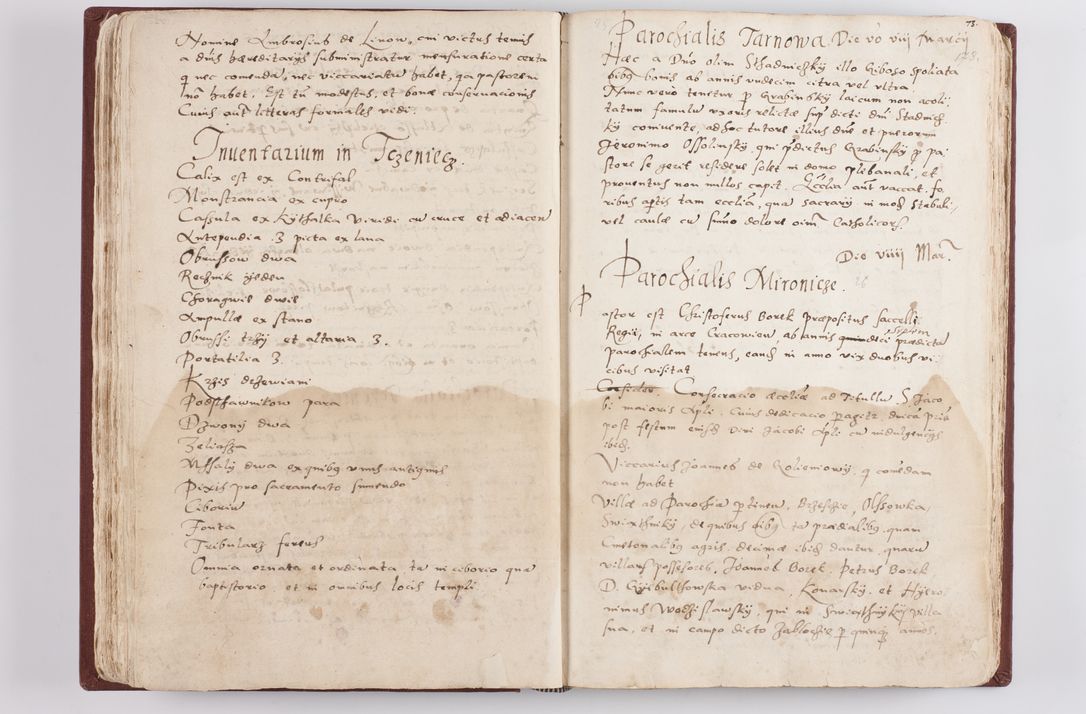 Nomine Ambrosius de Linow, cui victus temis
a dnis hæreditarys subministratur mensuratione certa
q nec comeda, nec viccariatu habet, qa pastore ni
no habet. Est tn modestus, et bonæ conseruacionis
Cuius aut litteras formales vidi.
Inuentarium in Tczeniecz.
Calix est ex Contrifal
Monstrancia ex cupro
Cassula ex Kythalka viridi cu cruce et adiacen
Antependia 3 picta ex lana
Obrussow dwa
Recznik yeden
Choragwie dwie
Ampullæ ex stano
Obrussi trzy et altaria. 3.
Portatilia 3.
Krzis drzewiani
Podsthawnikow para
Dzwony dwa
Zeliasza
Missaly dwa ex quibq vnus antiquus
Pixis pro sacramento sumendo
Ciboriu
Fonta
Tribularz fereus
Omnia ornata et ordinata ta in ciborio qua
baptistorio et in omnibus locis templi.
73.
Parochialis Tarnowa Die vo viij Marcij
Hæc a Dno olim Sthadniczky illo Giboso spoliata
oibq bonis ab annis vndecim citra vel vltra.
Nunc vero tenetur p Grabinsky laicum non acoli
tatum famulu vxoris relictæ sup dicti dni Stadnicz
ky coniuente, ad hoc tutore illius dnæ et puerorum
Jeronimo Ossolinsky, qui pdictus Grabinsky p pa
store se gerit residere solet in domo plibanali, et
prouentus non nullos capit. Ecclia aut vaccat, fo
ribus aptis tam ecclia, qua sacrary in mod Stabuli,
vel caulæ cu sumo dolore oium Catholicor.
Die viiij Mar.
Parochialis Mironicze.
Pastor est Christoferus Borek Præpositus saccelli
Regii, in arce Cracowien, ab annis prædicta
parochialem tenens, eand in anno vix duobus vi
cibus visitat
Consecracio æccliæ ad Titullu S Jaco
bi maioris Apli. Cuius dedicacio pagitr duica prià
post festum eiusd Diui Jacobi Apli cu indulgencys
ibid.
Viccarius Joannes de Golieniowy, q comedam
non habet
Villæ ad Parochia ptinen, Brzeszie, Olssowka
Swiæthniky, de quibus oibq ta prædialibq, quam
Cmetonalibq agris, decimæ ibid dantur, quaru
villaru possessores, Joannes Borek, Petrus Borek
D. Gyibulthowska vidua, Konarsky, et Hyero
nimus Wodzislawsky qui in Swiæthnyky villa
sua, et in campo dicto Jablocze p quinq annos.